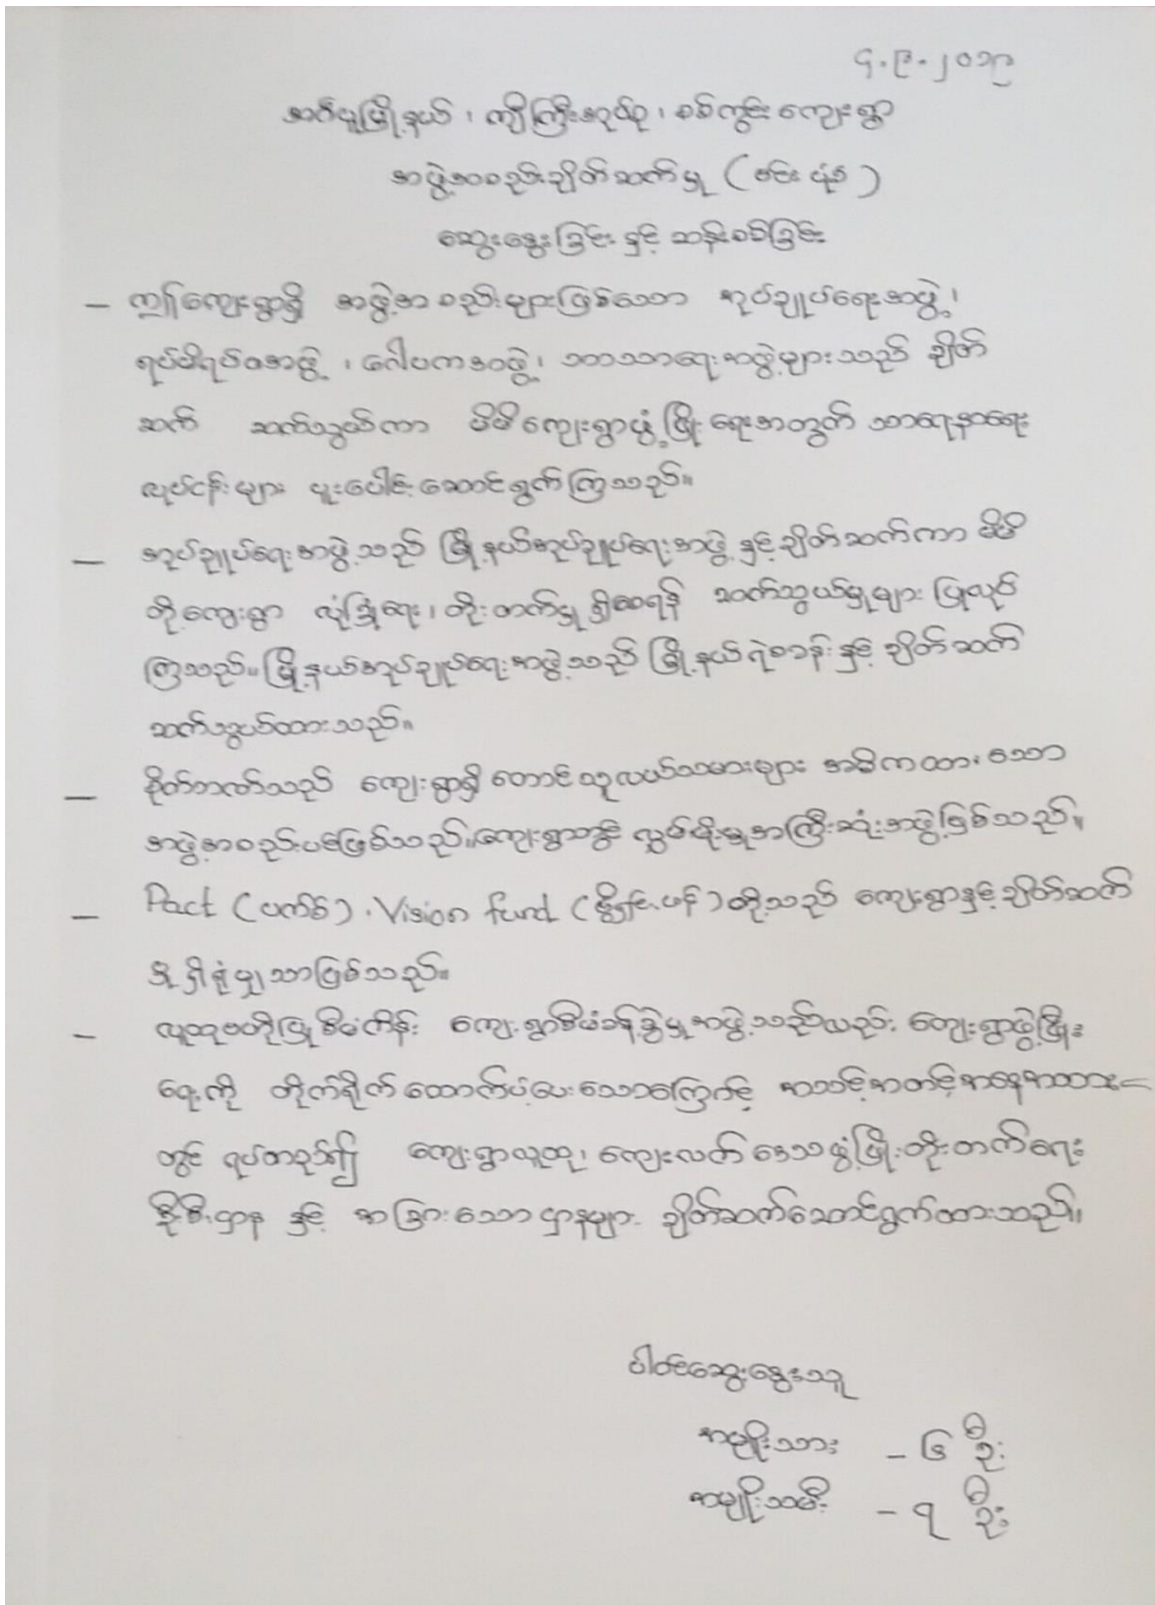 ၄.၉.၂၀၁၉
အင်္ဂပူမြို့နယ်၊ ကျီကြီးအုပ်စု၊ စစ်ကွင်းကျေးရွာ
အဖွဲ့အစည်းချိတ်ဆက်မှု (ဗင်းပုံစံ)
ဆွေးနွေးခြင်း နှင့် ဆန်းစစ်ခြင်း
– ဤကျေးရွာရှိ အဖွဲ့အစည်းများဖြစ်သော အုပ်ချုပ်ရေးအဖွဲ့၊
ရပ်မိရပ်ဖအဖွဲ့၊ ဂေါပကအဖွဲ့၊ ဘာသာရေးအဖွဲ့များသည် ချိတ်
ဆက် ဆက်သွယ်ကာ မိမိကျေးရွာဖွံ့ဖြိုးရေးအတွက် သာရေးနာရေး
လုပ်ငန်းများ ပူးပေါင်းဆောင်ရွက်ကြသည်။
– အုပ်ချုပ်ရေးအဖွဲ့သည် မြို့နယ်အုပ်ချုပ်ရေးအဖွဲ့နှင့် ချိတ်ဆက်ကာ မိမိ
တို့ကျေးရွာ လုံခြုံရေး၊ တိုးတက်မှုရှိစေရန် ဆက်သွယ်မှုများ ပြုလုပ်
ကြသည်။ မြို့နယ်အုပ်ချုပ်ရေးအဖွဲ့သည် မြို့နယ်ရဲစခန်းနှင့် ချိတ်ဆက်
ဆက်သွယ်ထားသည်။
– စိုက်ဘဏ်သည် ကျေးရွာရှိ တောင်သူလယ်သမားများ အဓိကထားသော
အဖွဲ့အစည်းပင်ဖြစ်သည်။ကျေးရွာတွင် လွှမ်းမိုးမှုအကြီးဆုံးအဖွဲ့ဖြစ်သည်။
– Pact (ပက်စ်)၊ Vision fund (ဗွီရှင်းဖန်)တို့သည် ကျေးရွာနှင့်ချိတ်ဆက်
မှုရှိရုံမျှသာဖြစ်သည်။
– လူထုဗဟိုပြုစီမံကိန်း ကျေးရွာစီမံခန့်ခွဲမှုအဖွဲ့သည်လည်း ကျေးရွာဖွံ့ဖြိုး
ရေးကို တိုက်ရိုက်ထောက်ပံ့ပေးသောကြောင့် အသင့်အတင့်အနေအထား
တွင် ရပ်တည်၍ ကျေးရွာလူထု၊ ကျေးလက်ဒေသဖွံ့ဖြိုးတိုးတက်ရေး
ဦးစီးဌာန နှင့် အခြားသောဌာနများ ချိတ်ဆက်ဆောင်ရွက်ထားသည်။
ပါဝင်ဆွေးနွေးသူ
အမျိုးသား – ၆ ဦး
အမျိုးသမီး – ၇ ဦး